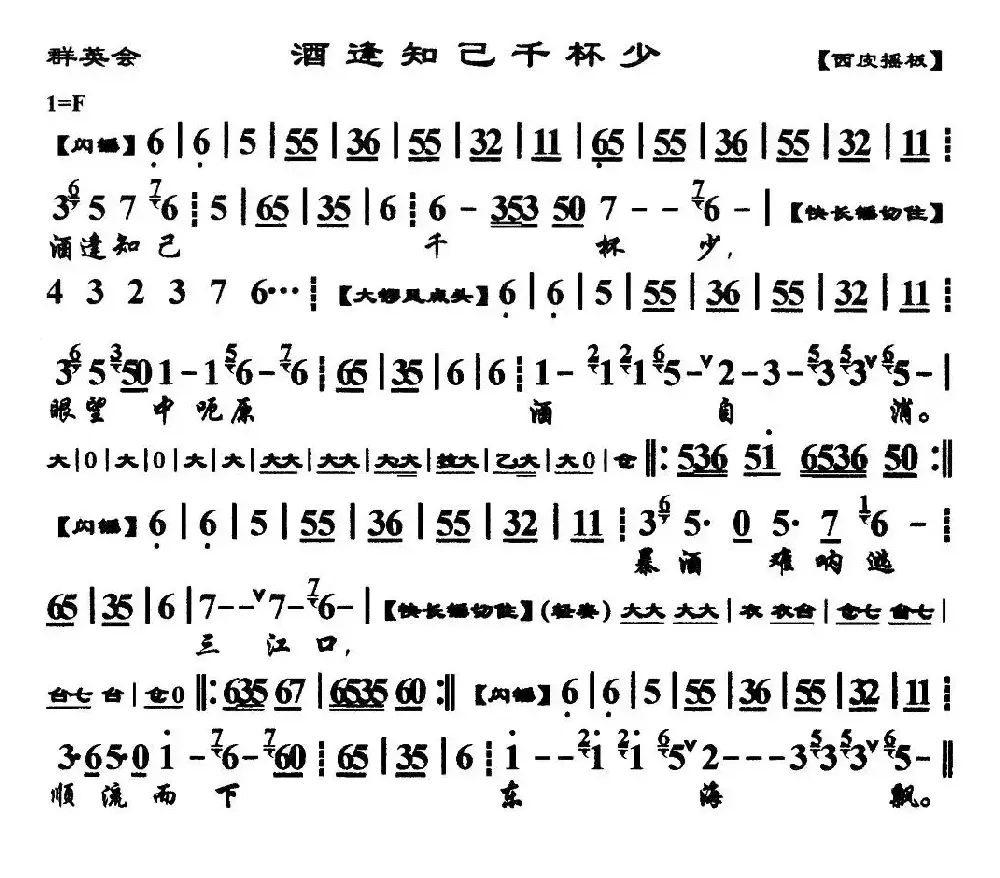 群英会 酒逢知己千杯少 【西皮摇板】
1=F
【闪锤】 6 | 6 | 5 | 55 | 36 | 55 | 32 | 11 | 65 | 55 | 36 | 55 | 32 | 11 ┋
3 6 5 7 7 6 ┋ 5 | 65 | 35 | 6 ┋ 6 - 353 50 7 - - 7 6 - | 【快长锤切住】
酒逢知己 千 杯 少,
4 3 2 3 7 6··· ┋ 【大锣凤点头】 6 | 6 | 5 | 55 | 36 | 55 | 32 | 11 ┋
3 6 5 3 50 1 - 1 5 6 - 7 6 ┋ 65 | 35 | 6 | 6 ┋ 1 - 2 1 2 1 6 5 - ∨ 2 - 3 - 5 3 5 3 ∨ 6 5 - |
眼望中呃原 酒 自 消。
大 | 0 | 大 | 0 | 大 | 大 | 大大 | 大大 | 大大 | 扎大 | 乙大 | 大0 | 仓 ‖: 536 51 6536 50 :‖
【闪锤】 6 | 6 | 5 | 55 | 36 | 55 | 32 | 11 ┋ 3 6 5· 0 5· 7 1 6 - ┋
暴酒 难呐逃
65 | 35 | 6 | 7 - - ∨ 7 - 7 6 - | 【快长锤切住】(轻奏) 大大 大大 | 衣 衣台 | 仓七 台七 |
三 江 口,
台七 台 | 仓0 ‖: 635 67 | 6535 60 :‖ 【闪锤】 6 | 6 | 5 | 55 | 36 | 55 | 32 | 11 ┋
3·65·0 1 - 7 6 - 7 60 ┋ 65 | 35 | 6 ┋ 1 - - 2 1 2 1 6 5 ∨ 2 - - - 3 5 3 5 3 ∨ 6 5 - ‖
顺 流 而 下 东 海 飘。